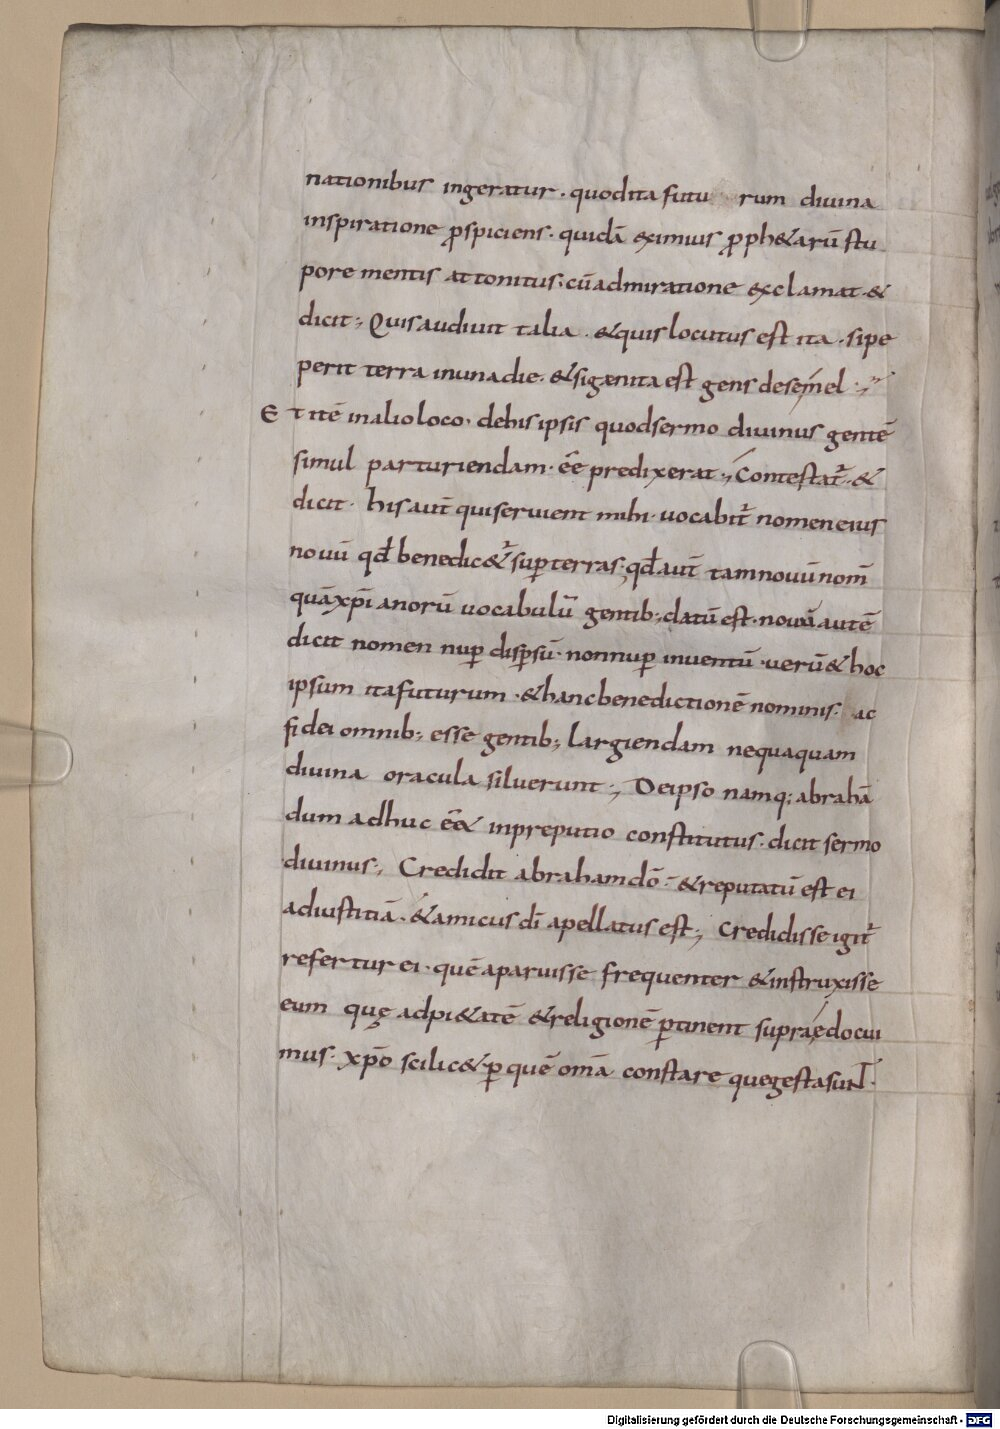 nationibus ingeratur. quodita futu rum diuina
inspiratione ꝓspiciens. quidā eximius ꝓph&arū stu
pore mentis attonitus. cū admiratione exclamat. &
dicit; Quis audiuit talia. & quis locutus est ita. si pe
perit terra in una die. & si genita est gens de semel.
Et itē in alio loco. de his ipsis quod sermo diuinus gentē
simul parturiendam. eē predixerat; Contestat̄. &
dicit. his aut̄ qui seruient mihi. uocabit̄ nomen eius
nouū qd̄ benedic&̄ suꝑ terras; qd̄ aut̄ tam nouū nom̄
quā xp̄ianorū uocabulū gentib; datū est. nouū autē
dicit nomen nuꝑ disꝑsū. non nuꝑ inuentū. uerū & hoc
ipsum ita futurum. & hanc benedictionē nominis. ac
fidei omnib; esse gentib; largiendam nequaquam
diuina oracula siluerunt; De ipso namq; abrahā
dum adhuc eē& in preputio constitutus. dicit sermo
diuinus; Credidit abraham dō. & reputatū est ei
ad iustitiā. & amicus dī apellatus est; Credidisse igit̄
refertur ei. quē aparuisse frequenter & instruxisse
eum quę ad pi&atē & religionē ꝑtinent supra edocui
mus. xp̄o scilic& ꝑ quē omā constare que gesta sunt.
Digitalisierung gefördert durch die Deutsche Forschungsgemeinschaft - DFG